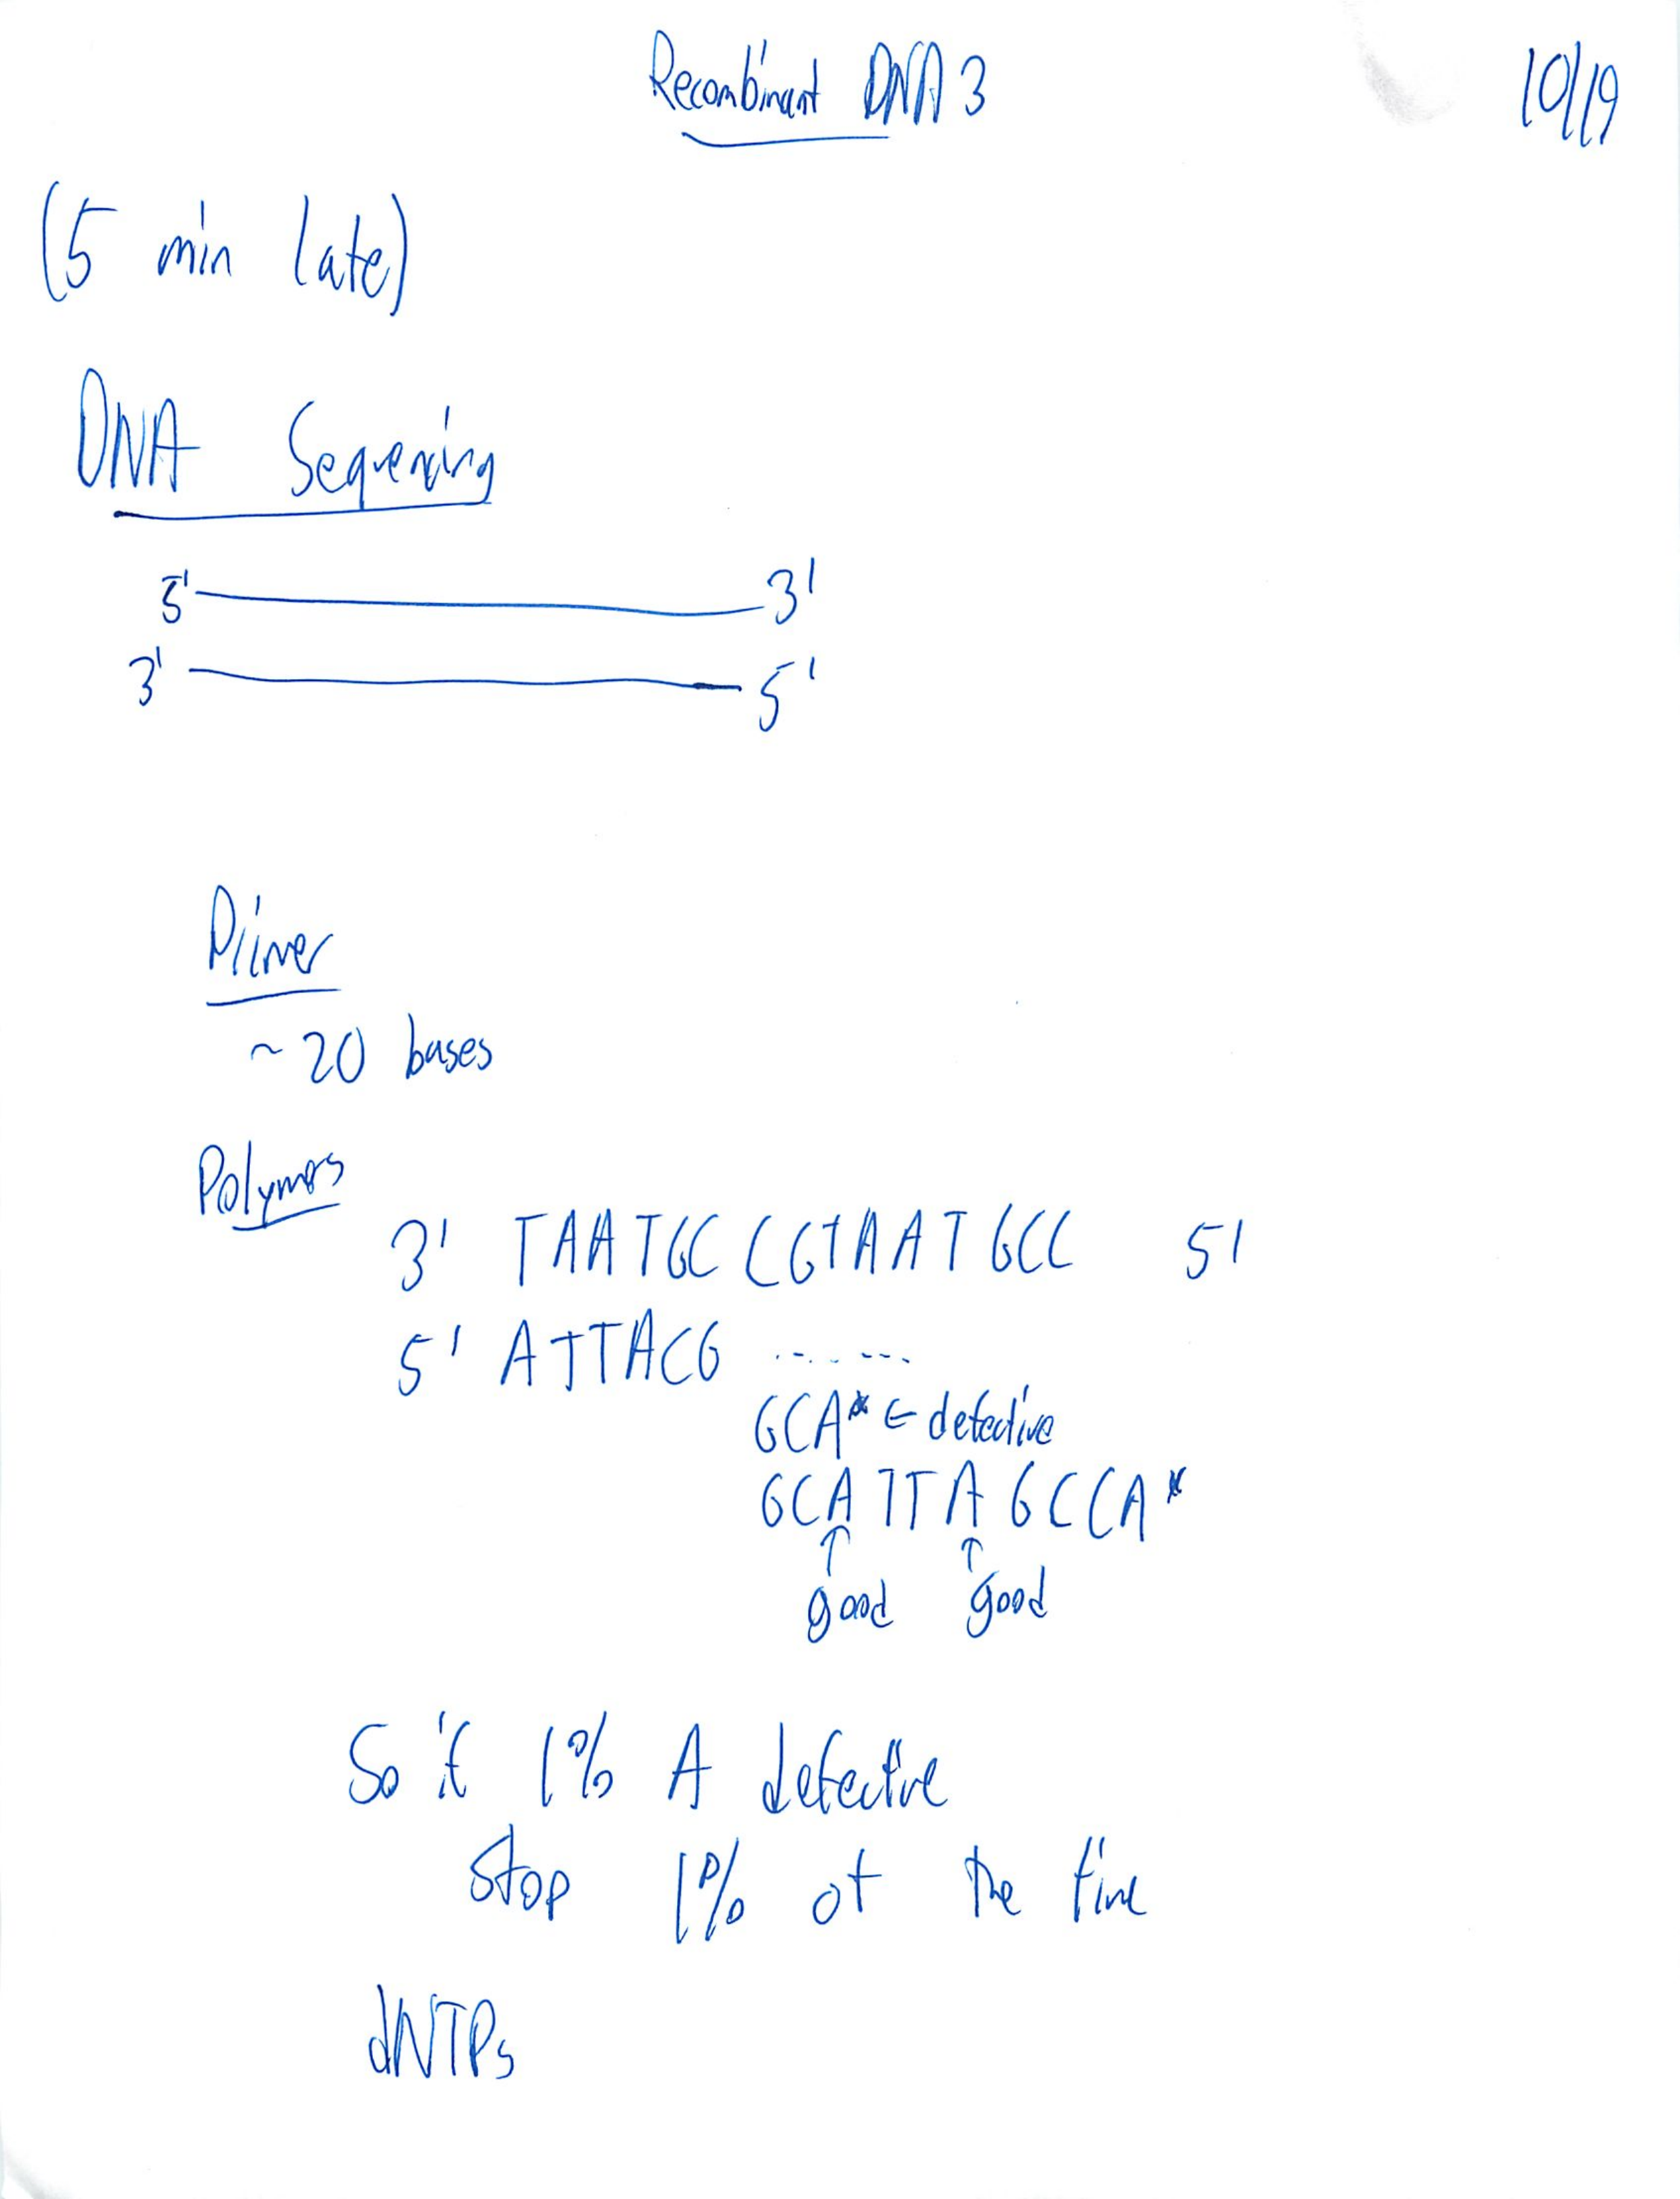 Recombinant DNA 3
10/19
(5 min late)
DNA Sequencing
5' 3'
3' 5'
Primer
~20 bases
Polymers
3' TAATGC CGTAATGCC 5'
5' ATTACG .......
GCA* ← defective
GCATTAGCCA*
↑ ↑
good good
So if 1% A defective
Stop 1% of the time
dNTPs